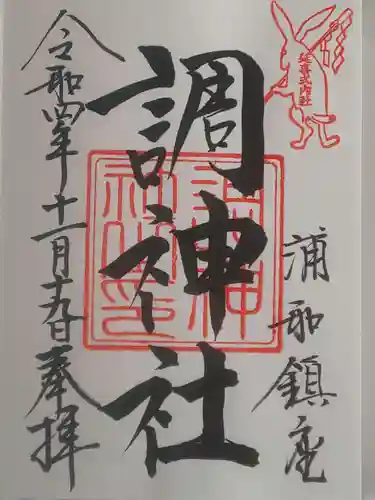 延喜式内社
浦和鎮座
調神社
令和四年十一月十九日奉拝